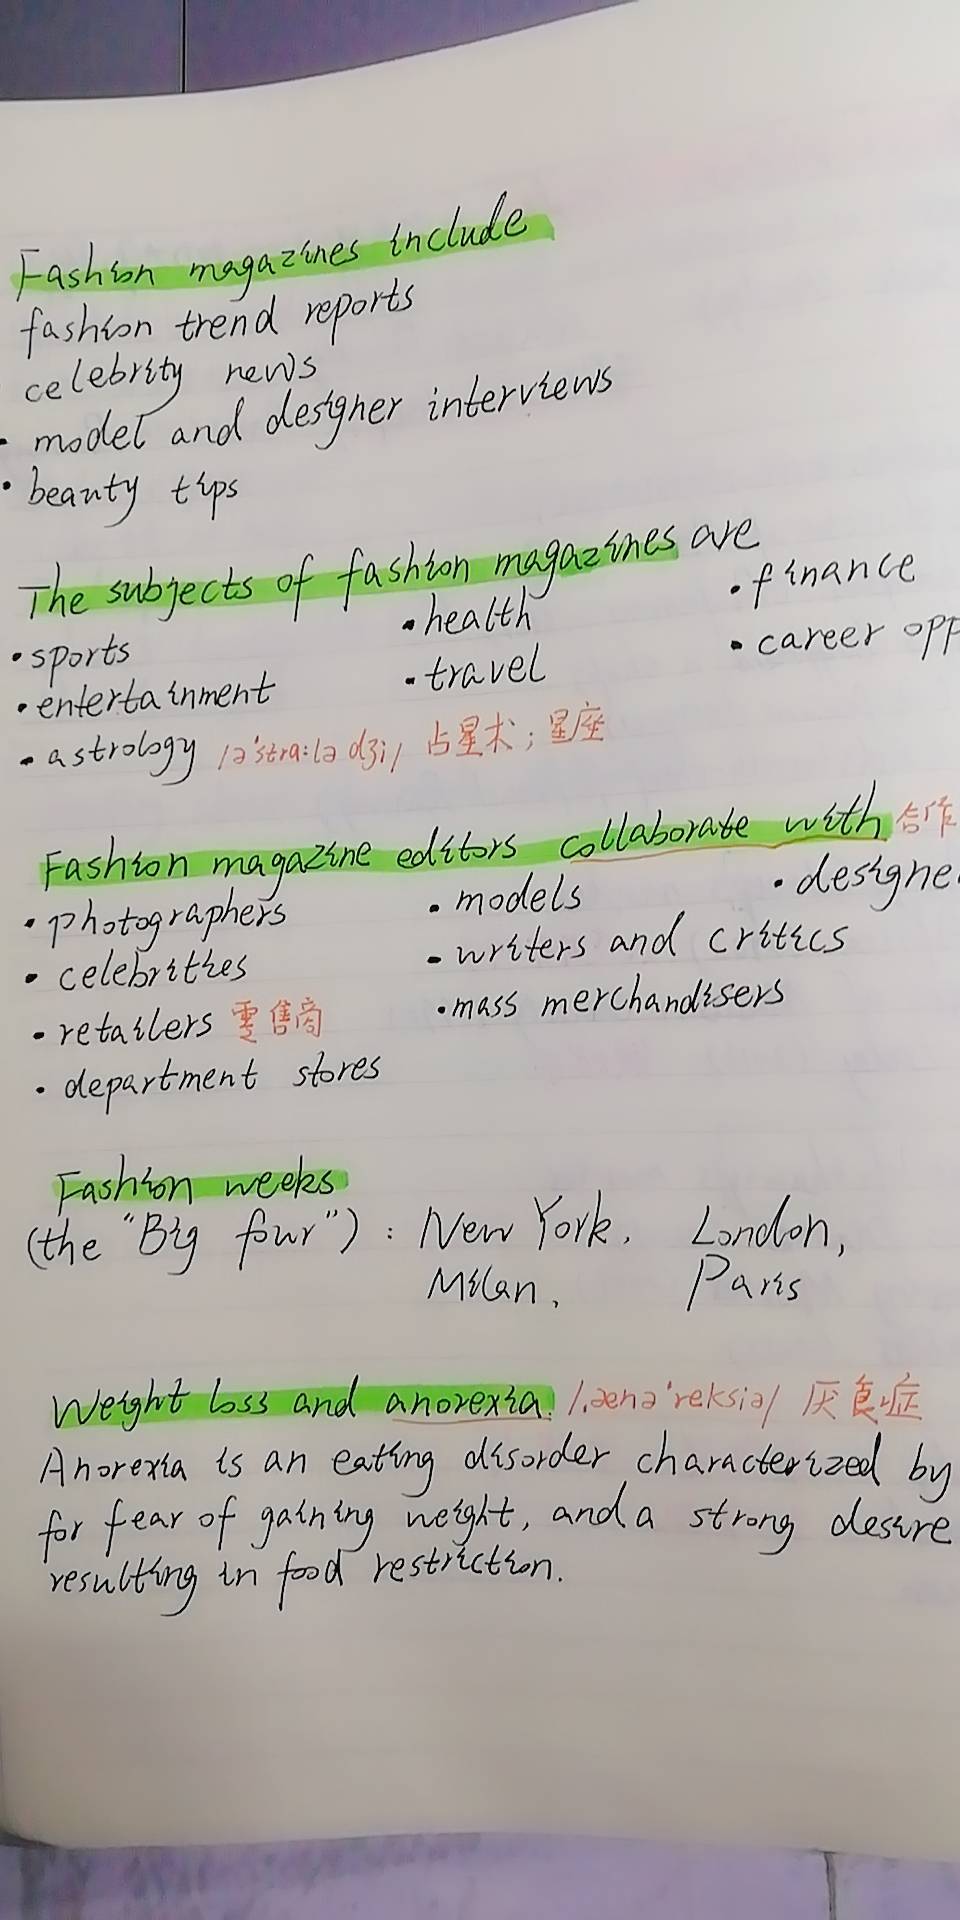 Fashion magazines include
fashion trend reports
celebrity news
• model and designer interviews
• beauty tips
The subjects of fashion magazines are
• sports • health • finance
• entertainment • travel • career opp
• astrology /ə'strɑ:lədʒi/ 占星术；星座
Fashion magazine editors collaborate with 合作
• photographers • models • designe
• celebrities • writers and critics
• retailers 零售商 • mass merchandisers
• department stores
Fashion weeks
(the "Big four") : New York, London,
Milan, Paris
Weight loss and anorexia /,ænə'reksiə/ 厌食症
Anorexia is an eating disorder characterized by
for fear of gaining weight, and a strong desire
resulting in food restriction.